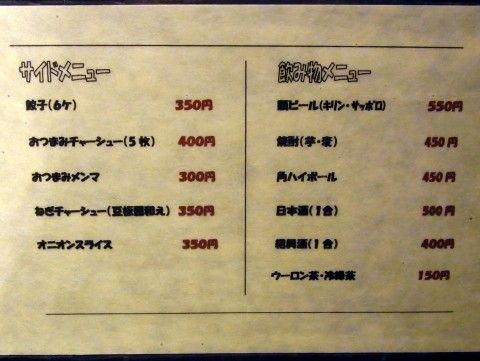 サイドメニュー
餃子(6ケ) 350円
おつまみチャーシュー(5枚) 400円
おつまみメンマ 300円
ねぎチャーシュー(豆板醤和え) 350円
オニオンスライス 350円
飲み物メニュー
瓶ビール(キリン・サッポロ) 550円
焼酎(芋・麦) 450円
角ハイボール 450円
日本酒(1合) 500円
紹興酒(1合) 400円
ウーロン茶・冷緑茶 150円